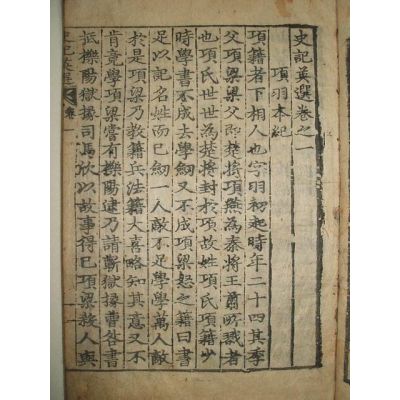 史記英選卷之一
項羽本紀
項籍者下相人也字羽初起時年二十四其季
父項梁梁父即楚將項燕為秦將王翦所戮者
也項氏世世為楚將封於項故姓項氏項籍少
時學書不成去學劒又不成項梁怒之籍曰書
足以記名姓而已劒一人敵不足學學萬人敵
於是項梁乃敎籍兵法籍大喜略知其意又不
肯竟學項梁嘗有櫟陽逮乃請蘄獄掾曹咎書
抵櫟陽獄掾司馬欣以故事得已項梁殺人與